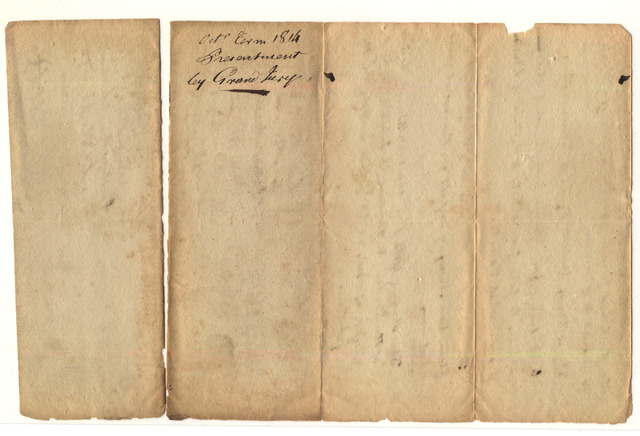 Octr Term 1814
Presentment
by Grand Jury